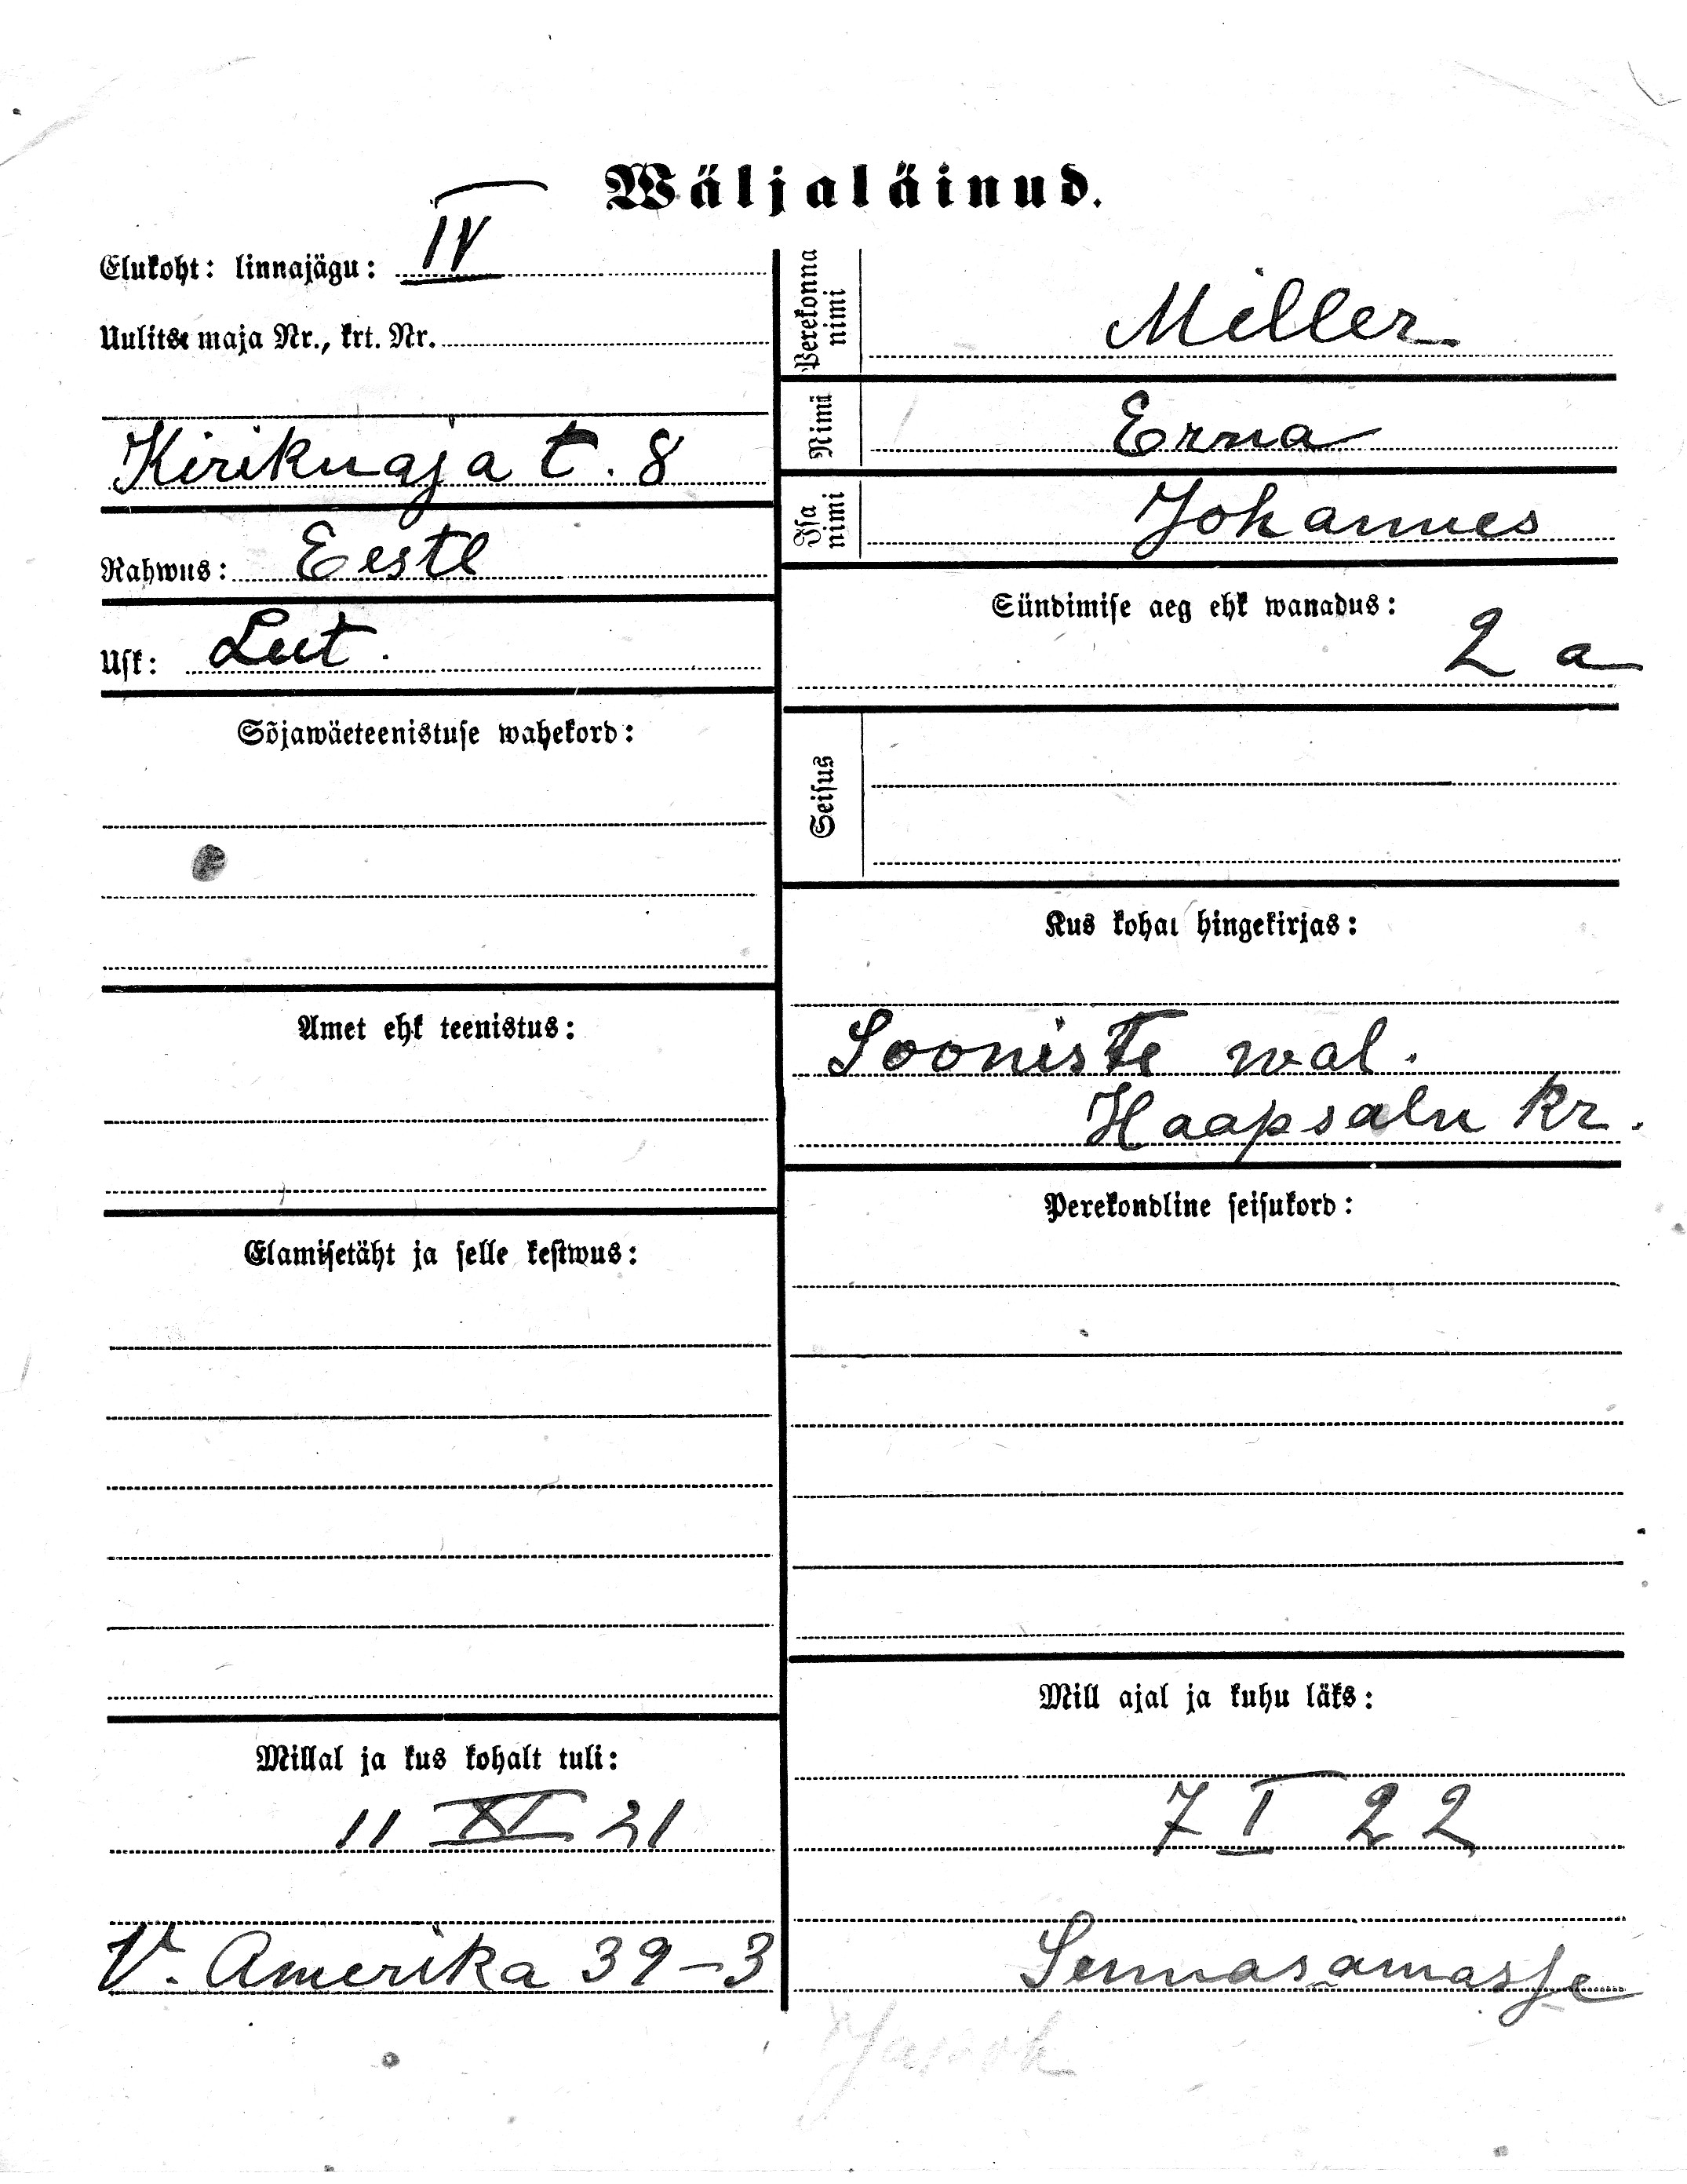 Wäljaläinud.
Elukoht: linnajägu: IV
Uulitse maja Nr., krt. Nr.
Kirikuaja t. 8
Rahwus: Eestl
Usk: Lut.
Sõjawäeteenistuse wahekord:
Amet ehk teenistus:
Elamisetäht ja selle kestwus:
Millal ja kus kohalt tuli:
11 XI 21
V. Amerika 39-3
Perekonna nimi Miller
Nimi Erna
Isa nimi Johannes
Sündimise aeg ehk wanadus:
2 a
Seisus
Kus kohal hingekirjas:
Sooniste wal.
Haapsalu kr.
Perekondline seisukord:
Mill ajal ja kuhu läks:
7 I 22
Sennasamasse